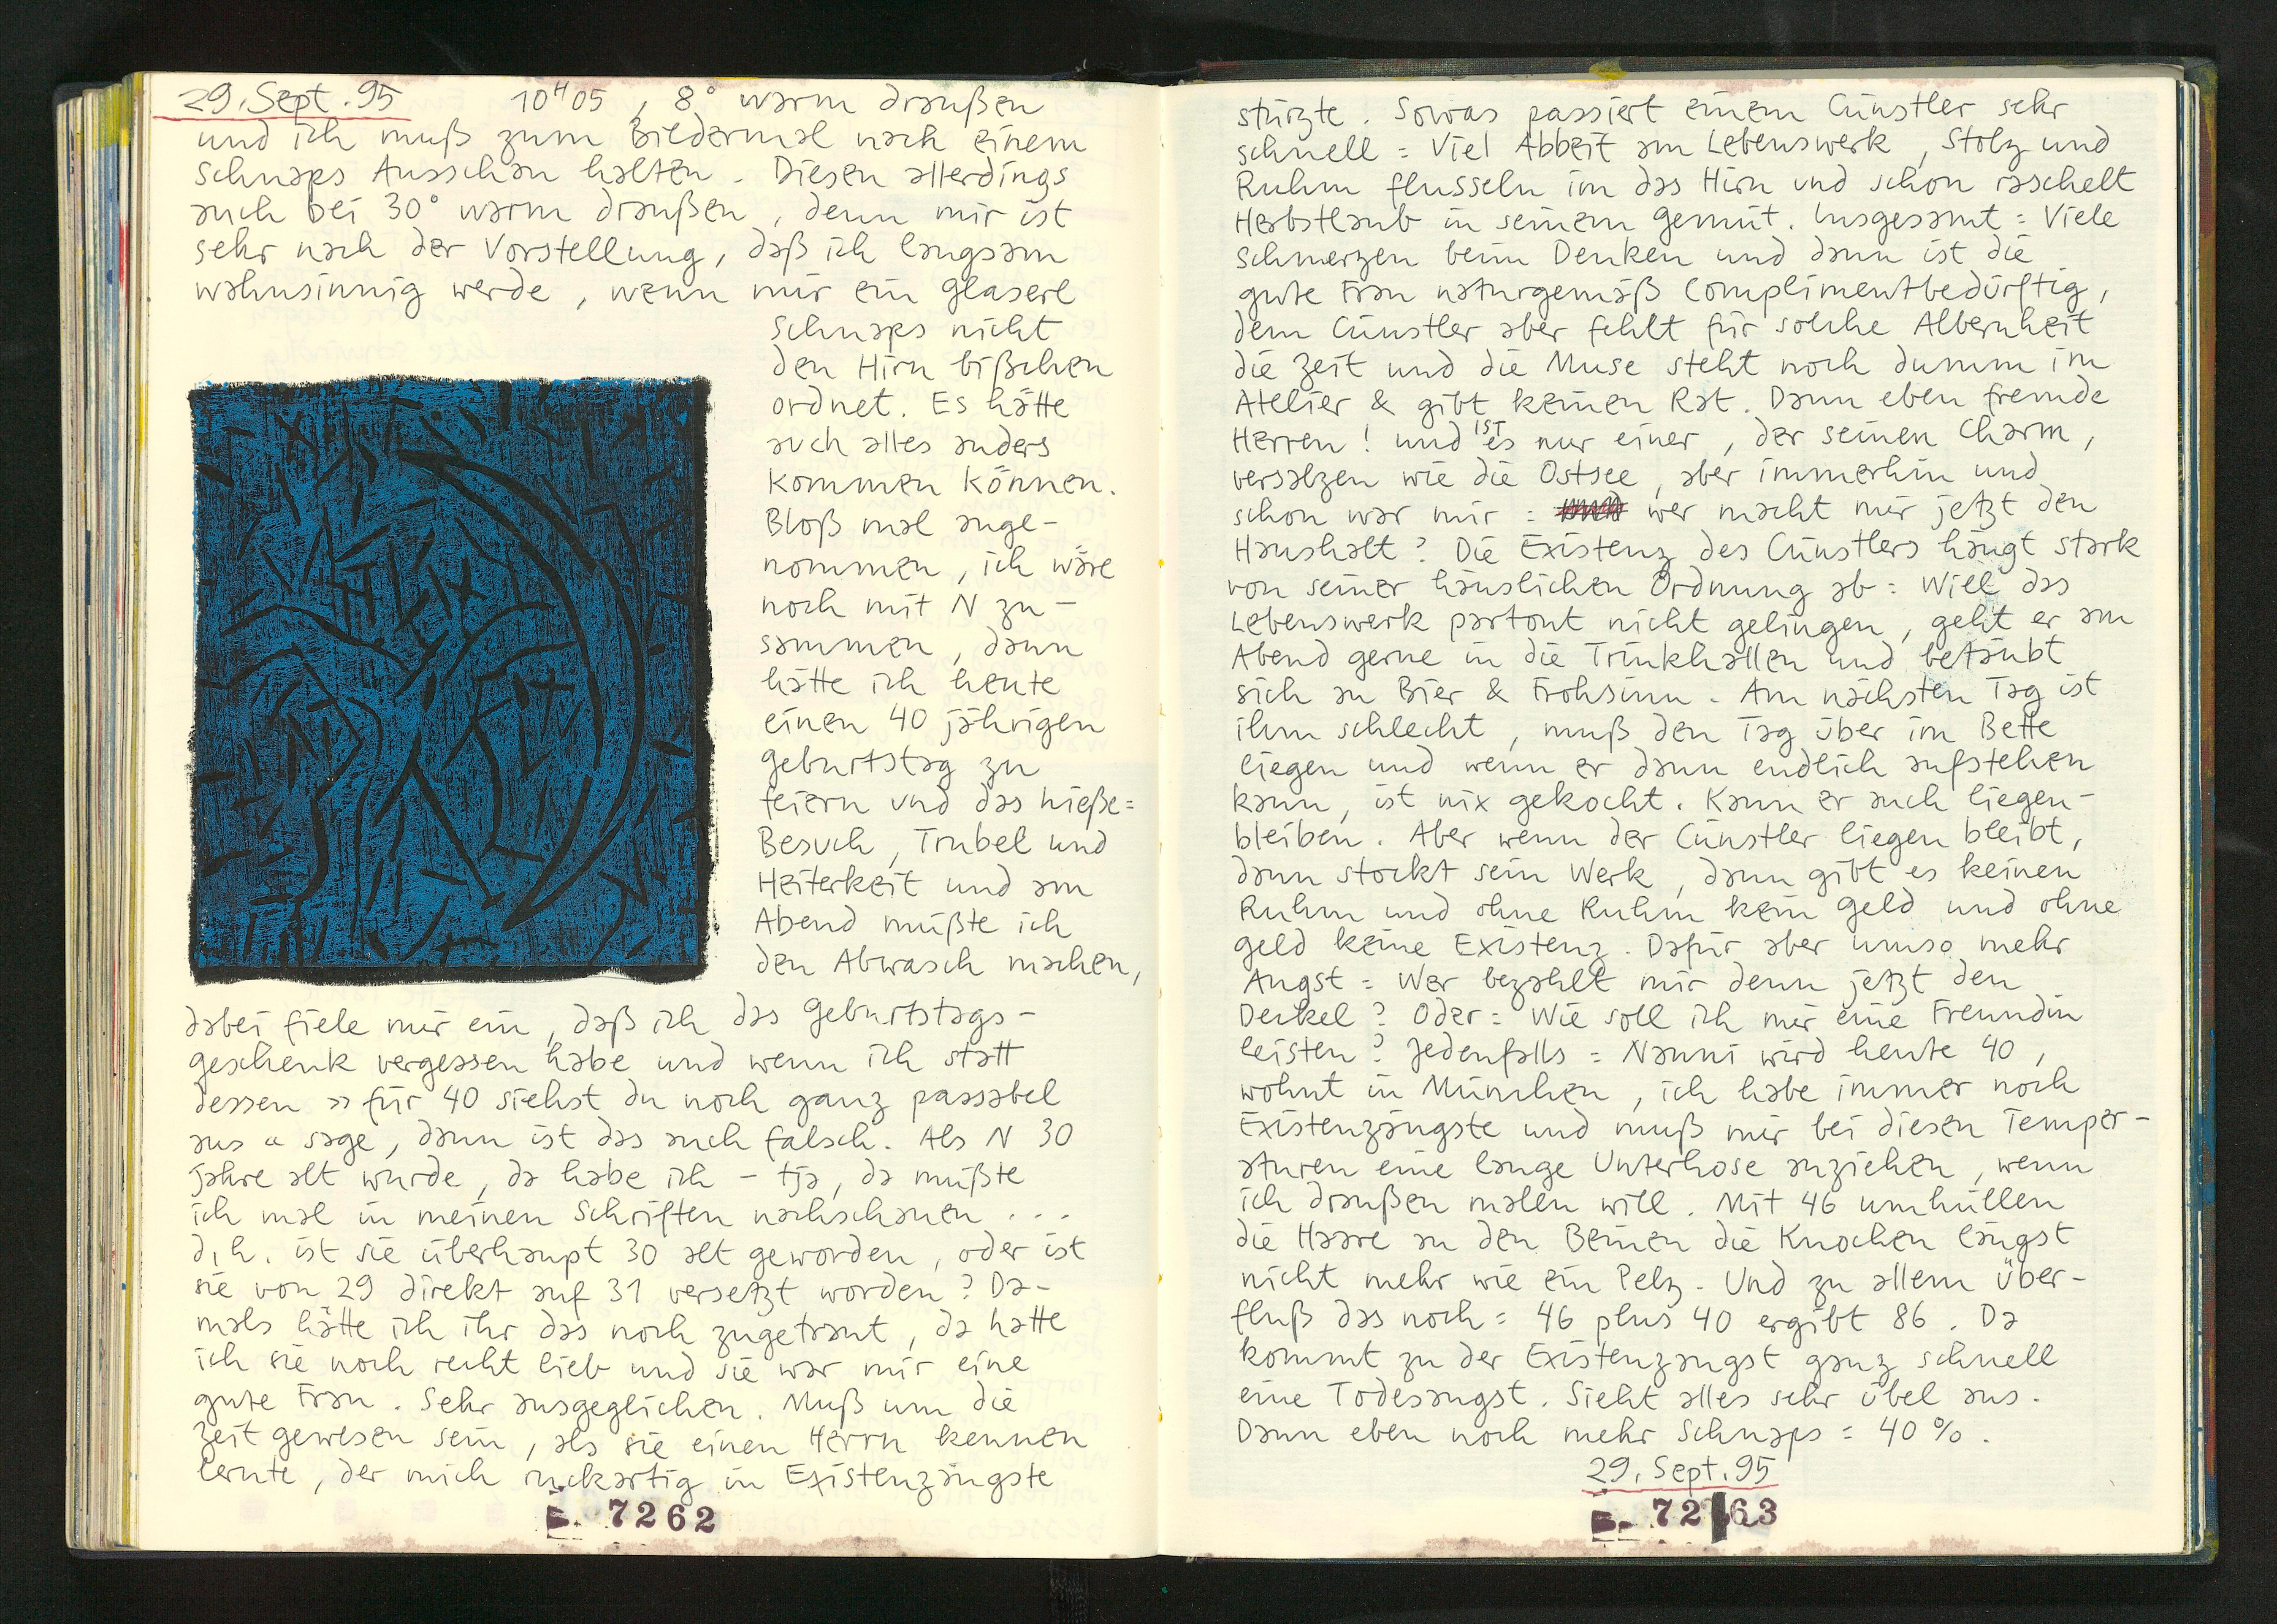 29. Sept. 95 10H05, 8° warm draußen
und ich muß zum Biedermal nach einem
Schnaps Ausschau halten. Diesen allerdings
auch bei 30° warm draußen, denn mir ist
sehr nach der Vorstellung, daß ich langsam
wahnsinnig werde, wenn mir ein Glaserl
Schnaps nicht
den Hirn bißchen
ordnet. Es hätte
auch alles anders
kommen können.
Bloß mal ange-
nommen, ich wäre
noch mit N zu-
sammen, dann
hätte ich heute
einen 40 jährigen
Geburtstag zu
feiern und das hieße=
Besuch, Trubel und
Heiterkeit und am
Abend müßte ich
den Abwasch machen,
dabei fiele mir ein, daß ich das Geburtstags-
geschenk vergessen habe und wenn ich statt
dessen »für 40 siehst du noch ganz passabel
aus« sage, dann ist das auch falsch. Als N 30
Jahre alt wurde, da habe ich - tja, da müßte
ich mal in meinen Schriften nachschauen...
d.h. ist sie überhaupt 30 alt geworden, oder ist
sie von 29 direkt auf 31 versetzt worden? Da-
mals hätte ich ihr das noch zugetraut, da hatte
ich sie noch recht lieb und sie war mir eine
gute Frau. Sehr ausgeglichen. Muß um die
Zeit gewesen sein, als sie einen Herrn kennen
lernte, der mich ruckartig in Existenzängste
7262
stürzte. Sowas passiert einem Cünstler sehr
schnell = Viel Abbeit am Lebenswerk, Stolz und
Ruhm flusseln im das Hirn und schon raschelt
Herbstlaub in seinem Gemüt. Insgesamt = Viele
Schmerzen beim Denken und dann ist die
gute Frau naturgemäß Complimentbedürftig,
dem Cünstler aber fehlt für solche Albernheit
die Zeit und die Muse steht noch dumm im
Atelier & gibt keinen Rat. Dann eben fremde
Herren! und ist es nur einer, der seinen Charm,
versalzen wie die Ostsee, aber immerhin und
schon war mir = wer macht mir jetzt den
Haushalt? Die Existenz des Cünstlers hängt stark
von seiner häuslichen Ordnung ab = Will das
Lebenswerk partout nicht gelingen, geht er am
Abend gerne in die Trinkhallen und betäubt
sich an Bier & Frohsinn. Am nächsten Tag ist
ihm schlecht, muß den Tag über im Bette
liegen und wenn er dann endlich aufstehen
kann, ist nix gekocht. Kann er auch liegen-
bleiben. Aber wenn der Cünstler liegen bleibt,
dann stockt sein Werk, dann gibt es keinen
Ruhm und ohne Ruhm kein Geld und ohne
Geld keine Existenz. Dafür aber umso mehr
Angst = Wer bezahlt mir denn jetzt den
Deckel? Oder = Wie soll ich mir eine Freundin
leisten? Jedenfalls = Nanni wird heute 40,
wohnt in München, ich habe immer noch
Existenzängste und muß mir bei diesen Temper-
aturen eine lange Unterhose anziehen, wenn
ich draußen malen will. Mit 46 umhüllen
die Haare an den Beinen die Knochen längst
nicht mehr wie ein Pelz. Und zu allem Über-
fluß das noch = 46 plus 40 ergibt 86. Da
kommt zu der Existenzangst ganz schnell
eine Todesangst. Sieht alles sehr übel aus.
Dann eben noch mehr Schnaps = 40%.
29. Sept. 95
7263